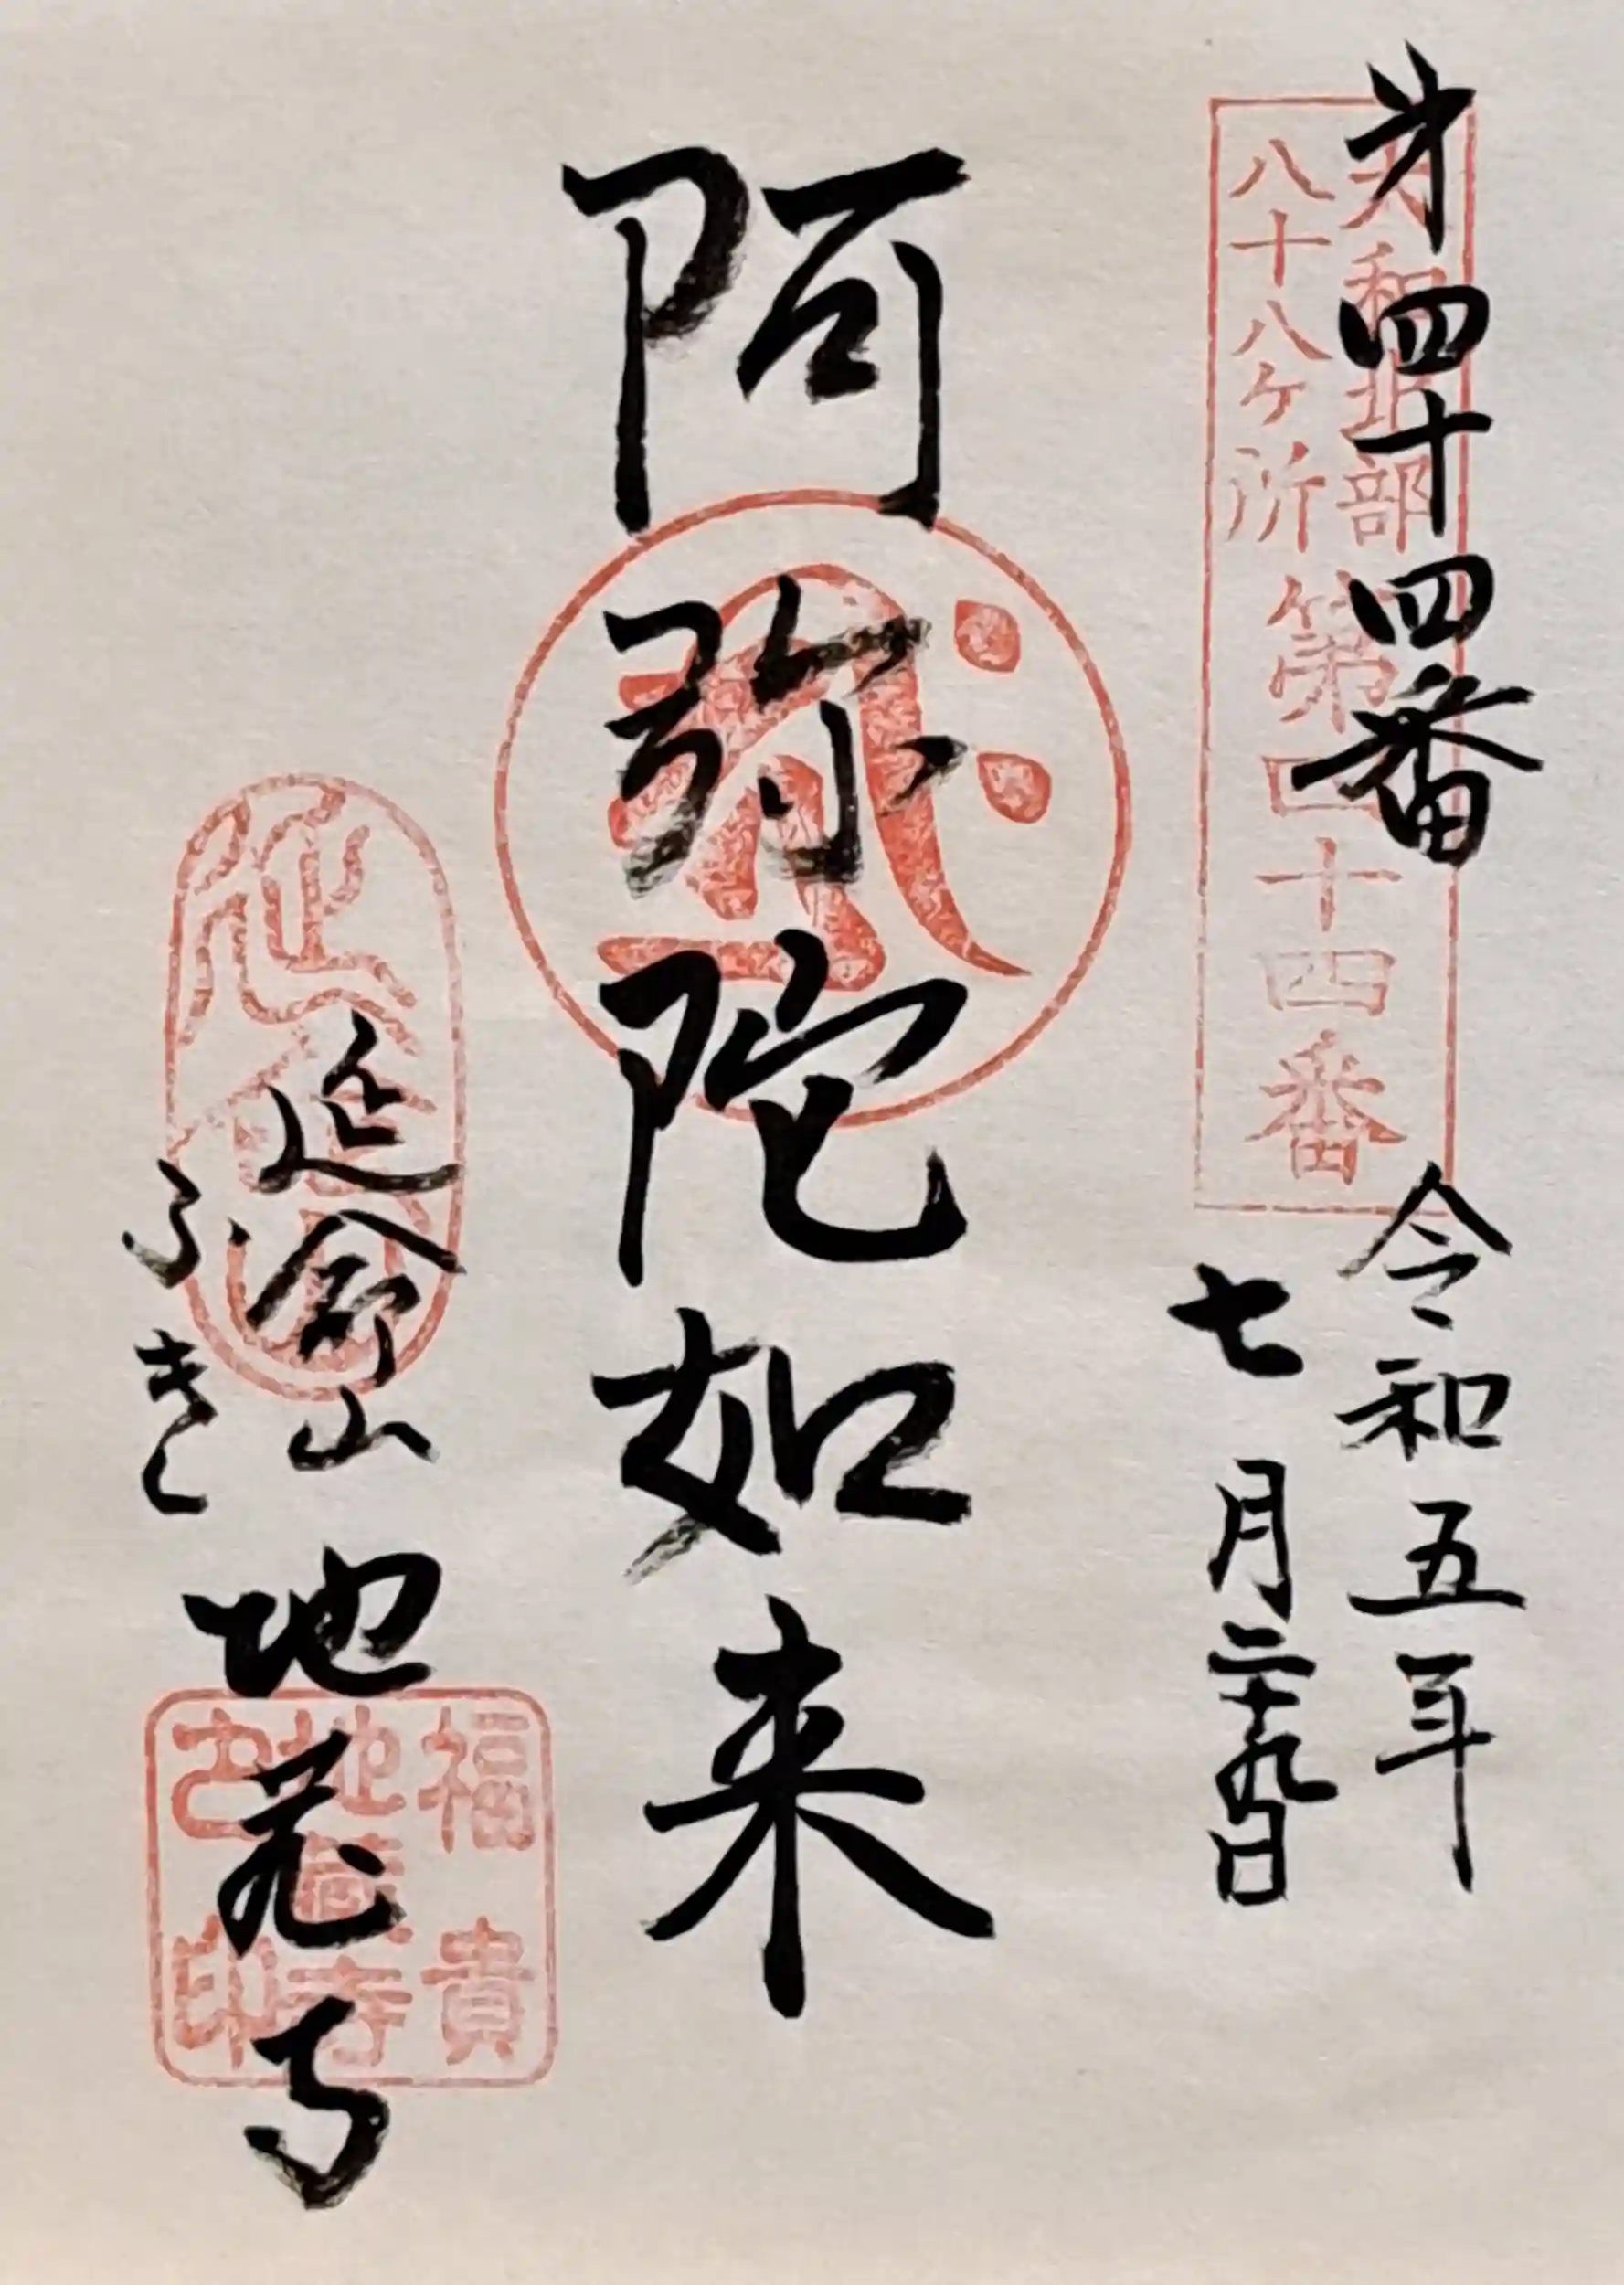 第四十四番
大和北部
八十八ヶ所
第四十四番
令和五年
七月二十九日
阿弥陀如来
延命山
ふきし
地蔵寺
福貴
地蔵寺
之印